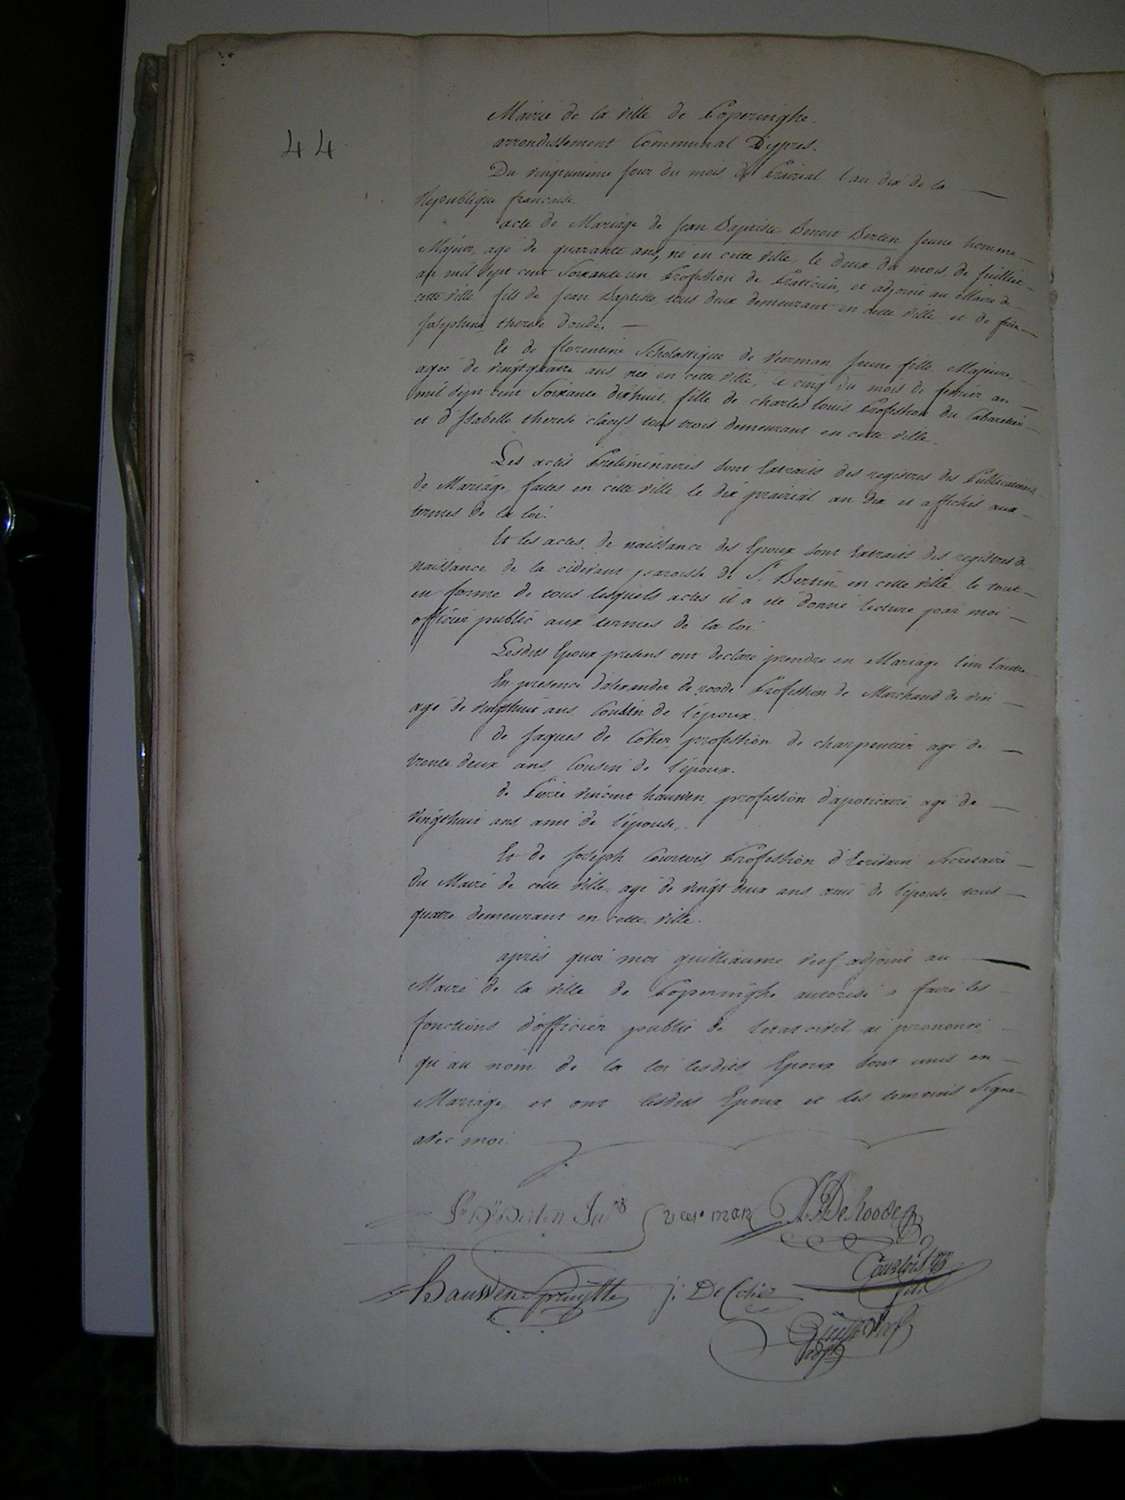 44
Mairie de la ville de Poperinghe.
arrondissement Communal Dypres.
Du vingtunieme jour du mois de Prairial l'an dix de la
République francaise.
acte de Mariage de Jean Baptiste Benoit Bertin jeune homme
Majeur, agé de quarante ans, né en cette ville, le deux du mois de Juillet
an mil sept cent soixante un Profession de Praticien, et adjoint au Maire de
cette ville fils de Jean Baptiste tous deux demeurant en cette ville et de feue
Josephine therese doude.
Et de florentine Scholastique de veerman jeune fille Majeure,
agée de vingtquatre ans née en cette ville, le cinq du mois de fevrier an
mil sept cent soixante dixhuit, fille de charles louis Profession de Cabaretier
et d'Isabelle therese tous trois demeurant en cette ville.
Les actes Preliminaires sont Extraits des registres des Publications
de Mariage, faites en cette ville le dix prairial an dix et affichés aux
termes de la loi.
Et les actes de naissance des Epoux sont Extraits des registres de
naissance de la cidevant paroisse de St. Bertin en cette ville le tout
en forme de tous lesquels actes il a été donné lecture par moi
officier public aux termes de la loi.
Lesdits Epoux presens ont declaré prendre en Mariage l'un l'autre
En presence d'alexandre de roode Profession de Marchand de vin
agé de vingthuit ans Cousin de l'époux.
de Jaques de Coker, profession de charpentier agé de
trente deux ans, Cousin de l'époux.
de Pierre vincent hauwen, profession d'apoticaire agé de
vingthuit ans ami de l'épouse.
Et de Joseph Courtois Profession d'Ecrivain Secretaire
du Maire de cette ville, agé de vingt deux ans ami de l'épouse tous
quatre demeurant en cette ville.
après quoi moi guilliaume vief adjoint au
Maire de la ville de Poperinghe autorisé a faire les
fonctions d'officier public de l'état civil ai prononcé
qu'au nom de la loi lesdits Epoux sont unis en
Mariage, et ont lesdits Epoux et les temoins Signé
avec moi.
Bertin veerman De Roode
Courtois
Hauwen J. De Coker